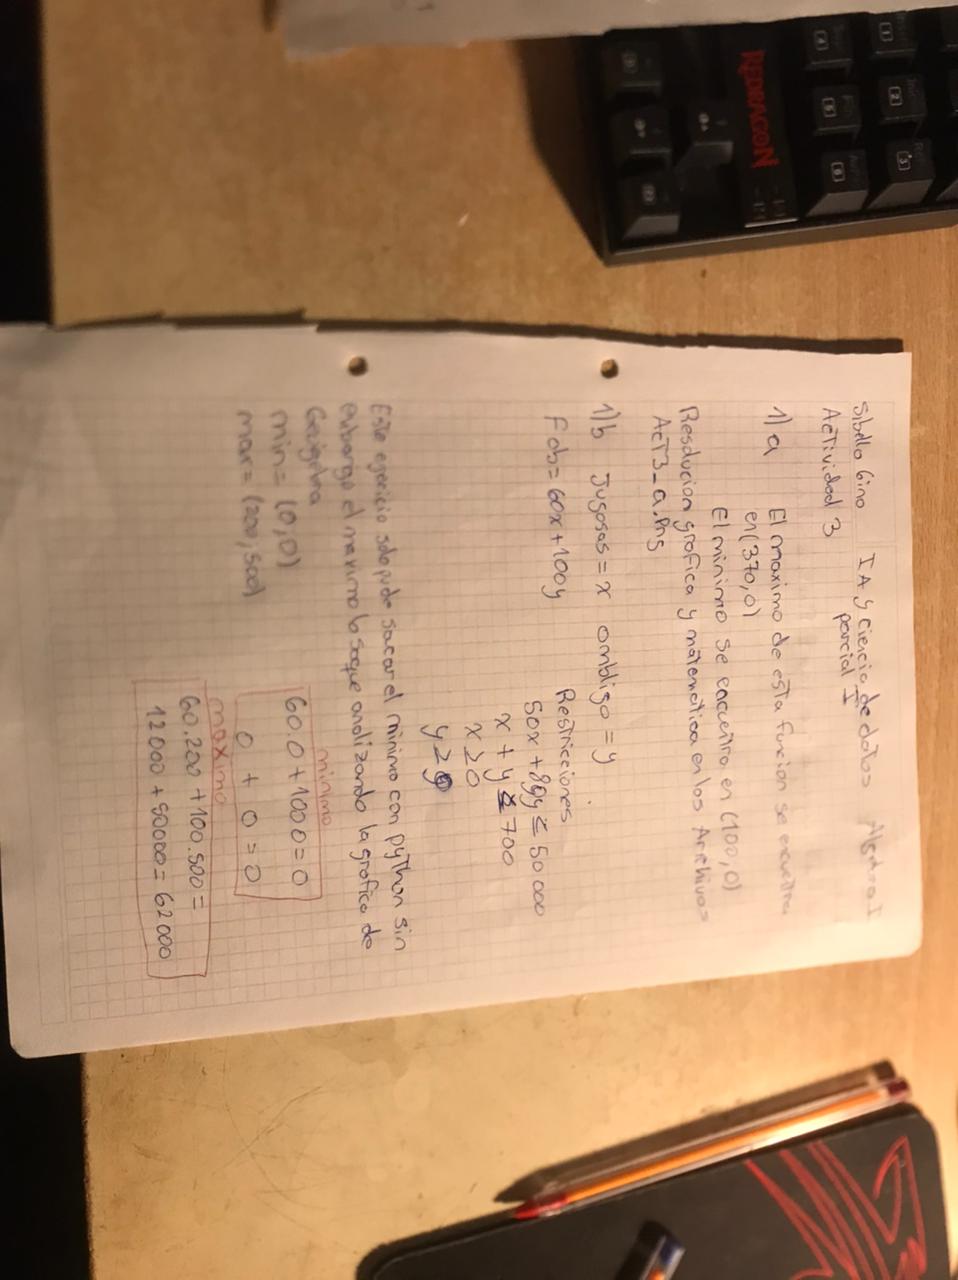 Sibello Gino IA y ciencia de datos Algebra I
parcial I
Actividad 3
1)a El maximo de esta funcion se encuentra
en (370,0)
El minimo se encuentra en (100,0)
Resolucion grafica y matematica en los Archivos
ACT3_a.Png
1)b Jugosas = x ombligo = y
Fob = 60x+100y
Restricciones
50x + 80y ≤ 50 000
x + y ≤ 700
x ≥ 0
y ≥ 0
Este ejercicio solo pude sacar el minimo con python sin
embargo el maximo lo saque analizando la grafica de
Geogebra
min = (0,0)
max = (200,500)
minimo
60.0 + 100 0 = 0
0 + 0 = 0
maximo
60.200 + 100.500 =
12000 + 50000 = 62000
REDRAGON